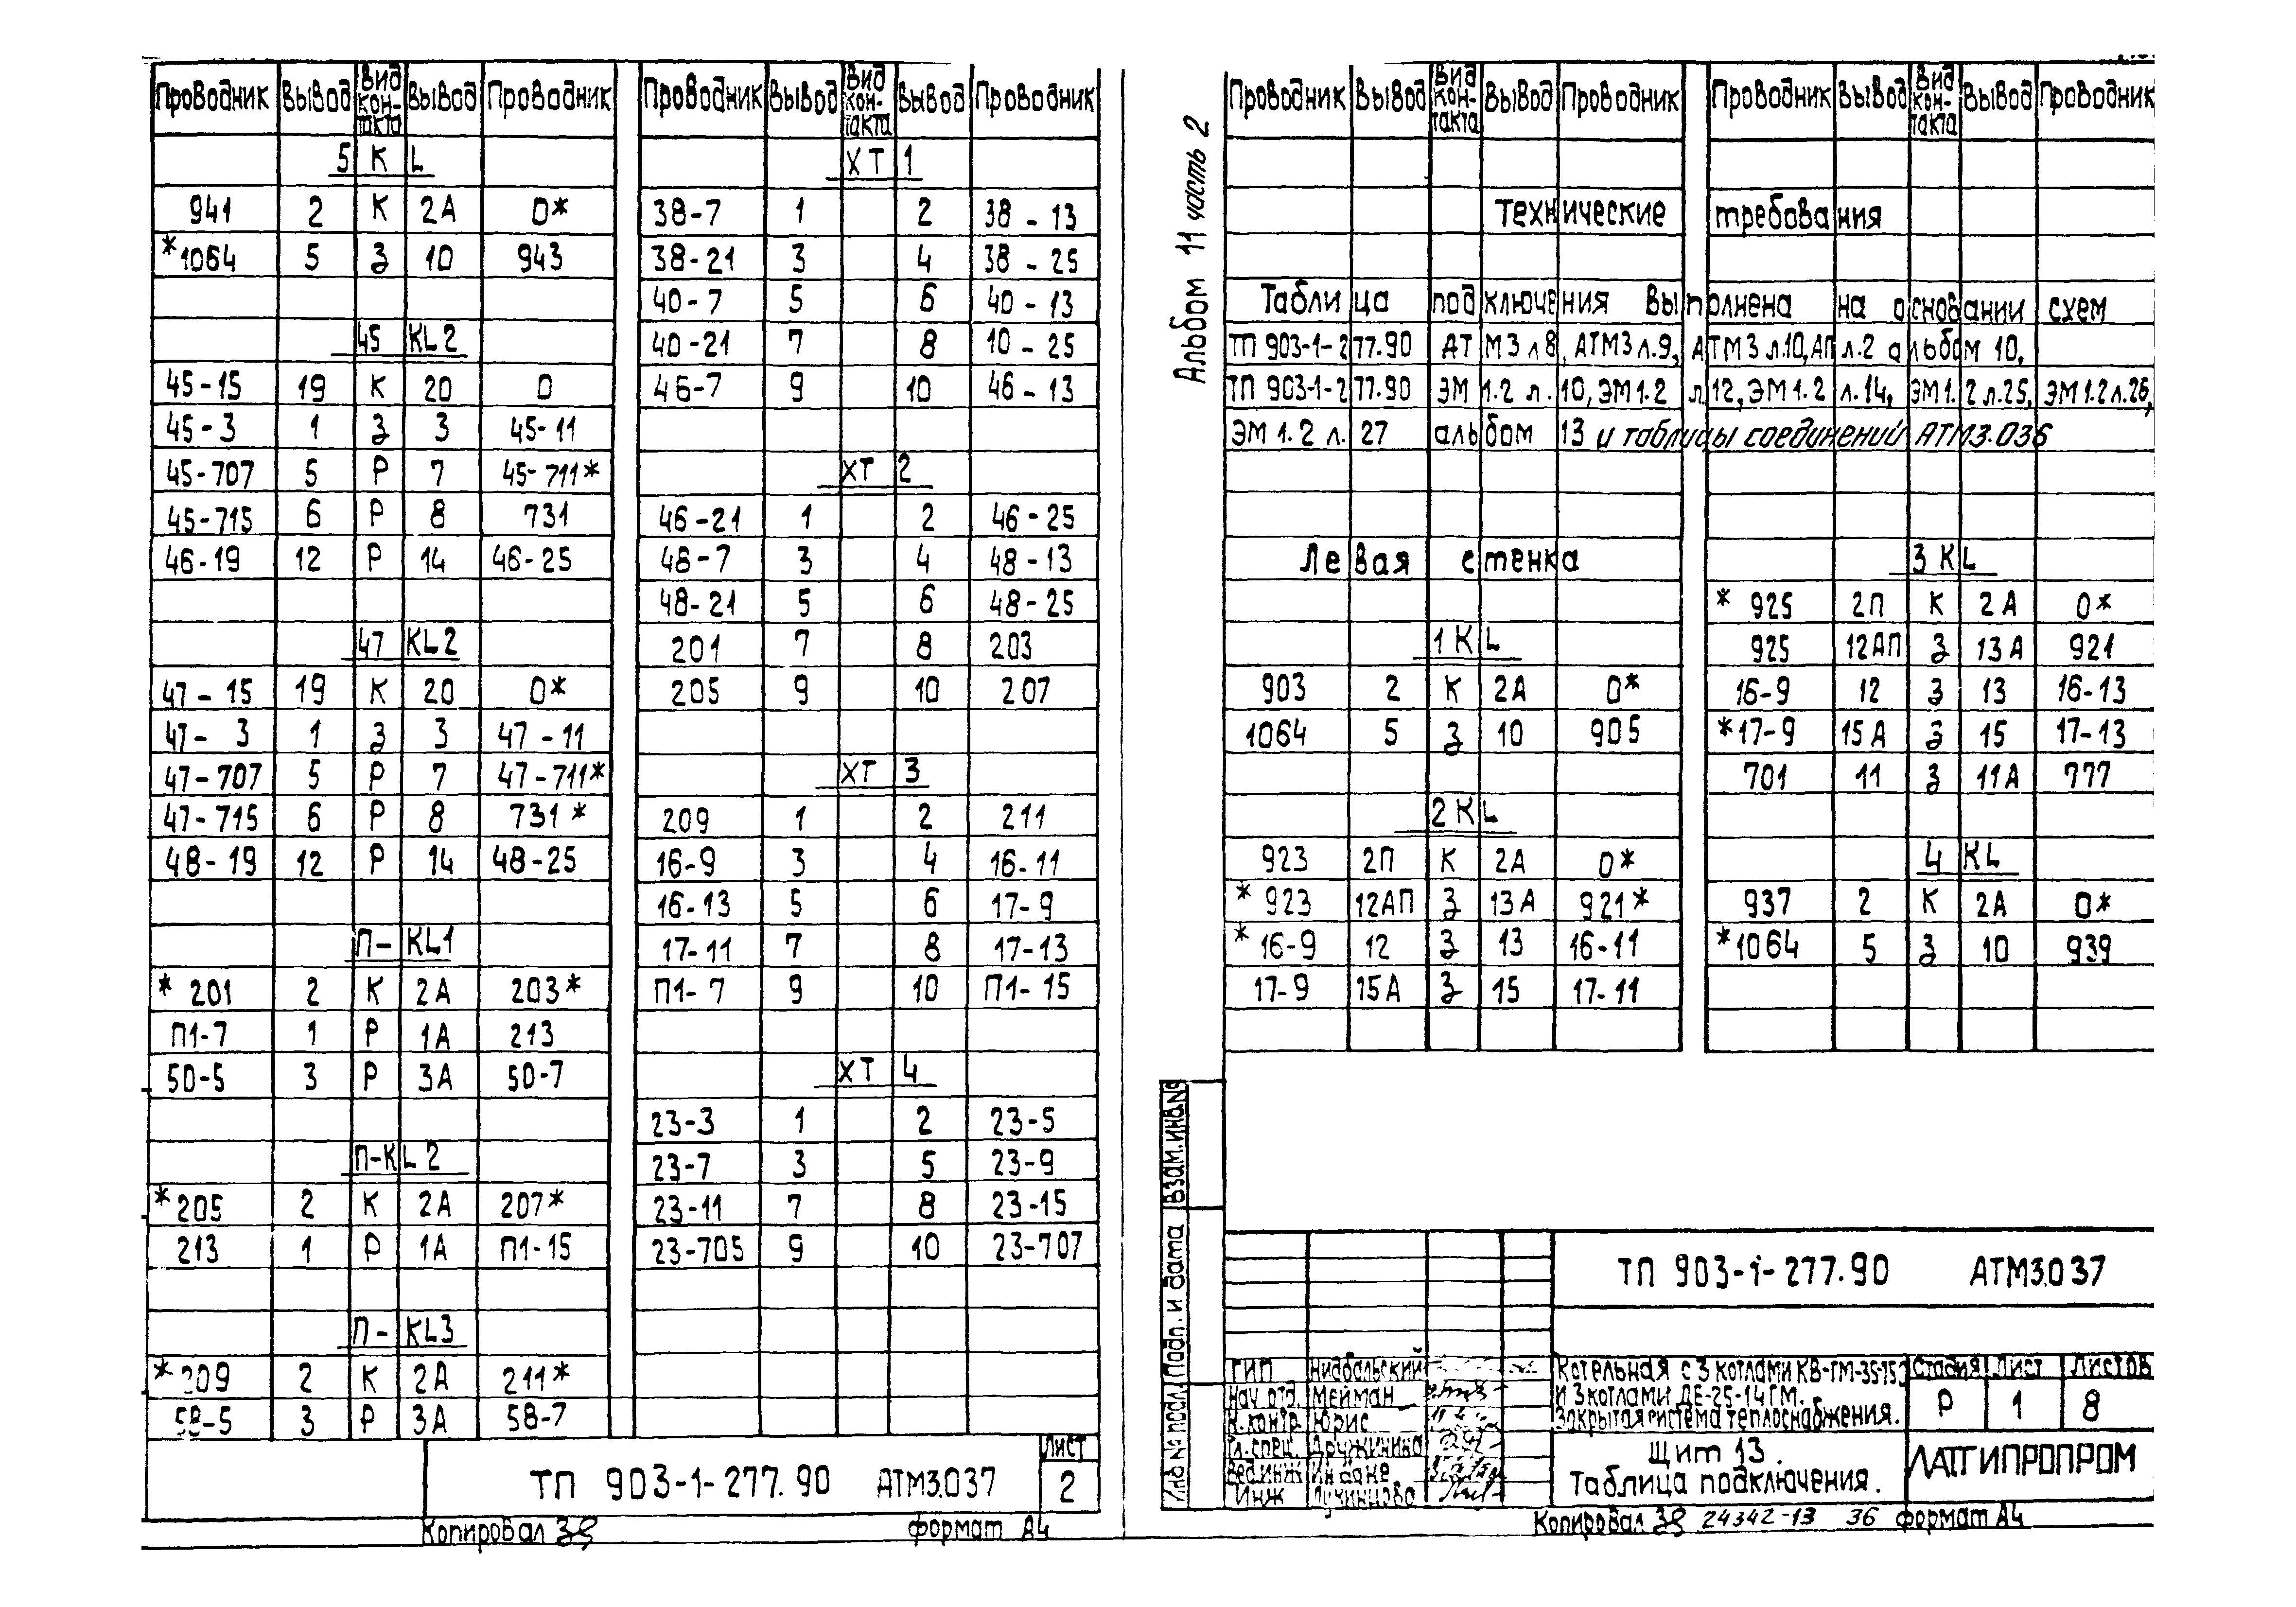 Проводник Вывод Вид кон-такта Вывод Проводник
5 K L
941 2 К 2А 0*
*1064 5 З 10 943
45 KL2
45-15 19 К 20 0
45-3 1 З 3 45-11
45-707 5 Р 7 45-711*
45-715 6 Р 8 731
46-19 12 Р 14 46-25
47 KL2
47-15 19 К 20 0*
47-3 1 З 3 47-11
47-707 5 Р 7 47-711*
47-715 6 Р 8 731*
48-19 12 Р 14 48-25
П-KL1
*201 2 К 2А 203*
П1-7 1 Р 1А 213
50-5 3 Р 3А 50-7
П-KL2
*205 2 К 2А 207*
213 1 Р 1А П1-15
П-KL3
*209 2 К 2А 211*
58-5 3 Р 3А 58-7
Проводник Вывод Вид кон-такта Вывод Проводник
XT 1
38-7 1 2 38-13
38-21 3 4 38-25
40-7 5 6 40-13
40-21 7 8 10-25
46-7 9 10 46-13
XT 2
46-21 1 2 46-25
48-7 3 4 48-13
48-21 5 6 48-25
201 7 8 203
205 9 10 207
XT 3
209 1 2 211
16-9 3 4 16-11
16-13 5 6 17-9
17-11 7 8 17-13
П1-7 9 10 П1-15
XT 4
23-3 1 2 23-5
23-7 3 5 23-9
23-11 7 8 23-15
23-705 9 10 23-707
ТП 903-1-277.90 АТМ3.037
Лист
2
Копировал
формат А4
Альбом 11 часть 2
Проводник Вывод Вид кон-такта Вывод Проводник
Проводник Вывод Вид кон-такта Вывод Проводник
Технические требования
Таблица подключения выполнена на основании схем
ТП 903-1-277.90 АТМ3 л 8, АТМ3 л.9, АТМ3 л.10, АП л.2 альбом 10,
ТП 903-1-277.90 ЭМ 1.2 л. 10, ЭМ1.2 л.12, ЭМ1.2 л.14, ЭМ1.2 л.25, ЭМ1.2л.26,
ЭМ 1.2 л. 27 альбом 13 и таблицы соединений АТМ3.036
Левая стенка
1 K L
903 2 К 2А 0*
1064 5 З 10 905
2 K L
923 2П К 2А 0*
*923 12АП З 13А 921*
*16-9 12 З 13 16-11
17-9 15А З 15 17-11
3 K L
*925 2П К 2А 0*
925 12АП З 13А 921
16-9 12 З 13 16-13
*17-9 15А З 15 17-13
701 11 З 11А 777
4 KL
937 2 К 2А 0*
*1064 5 З 10 939
Взам.инв№
Подп. и дата
Инв № подл.
ТП 903-1-277.90 АТМ3.037
ГИП Нидбальский
Нач. отд. Мейман
Н.контр. Юрис
Гл.спец. Дружинина
Вед.инж
Инж
Котельная с 3 котлами КВ-ГМ-35-150
и 3 котлами ДЕ-25-14ГМ.
Закрытая система теплоснабжения.
Стадия Лист Листов
Р 1 8
Щит 13.
Таблица подключения.
ЛАТГИПРОПРОМ
Копировал
24342-13 36
формат А4